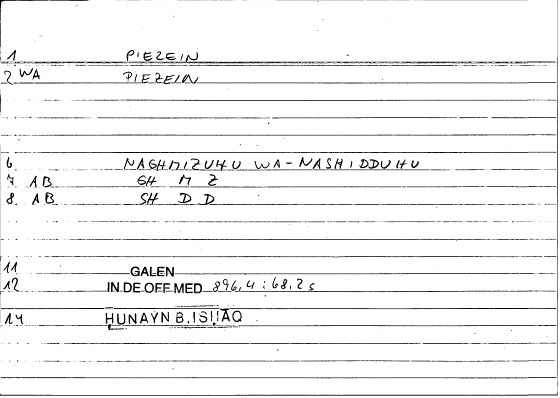 1 PIEZEIN
2 WA PIEZEIN
6 NAGHMIZUHU WA-NASHIDDUHU
7 AB GH M Z
8 AB SH D D
11 GALEN
12 IN DE OFF MED 896,4 : 68,2 s
14 HUNAYN B. ISHAQ